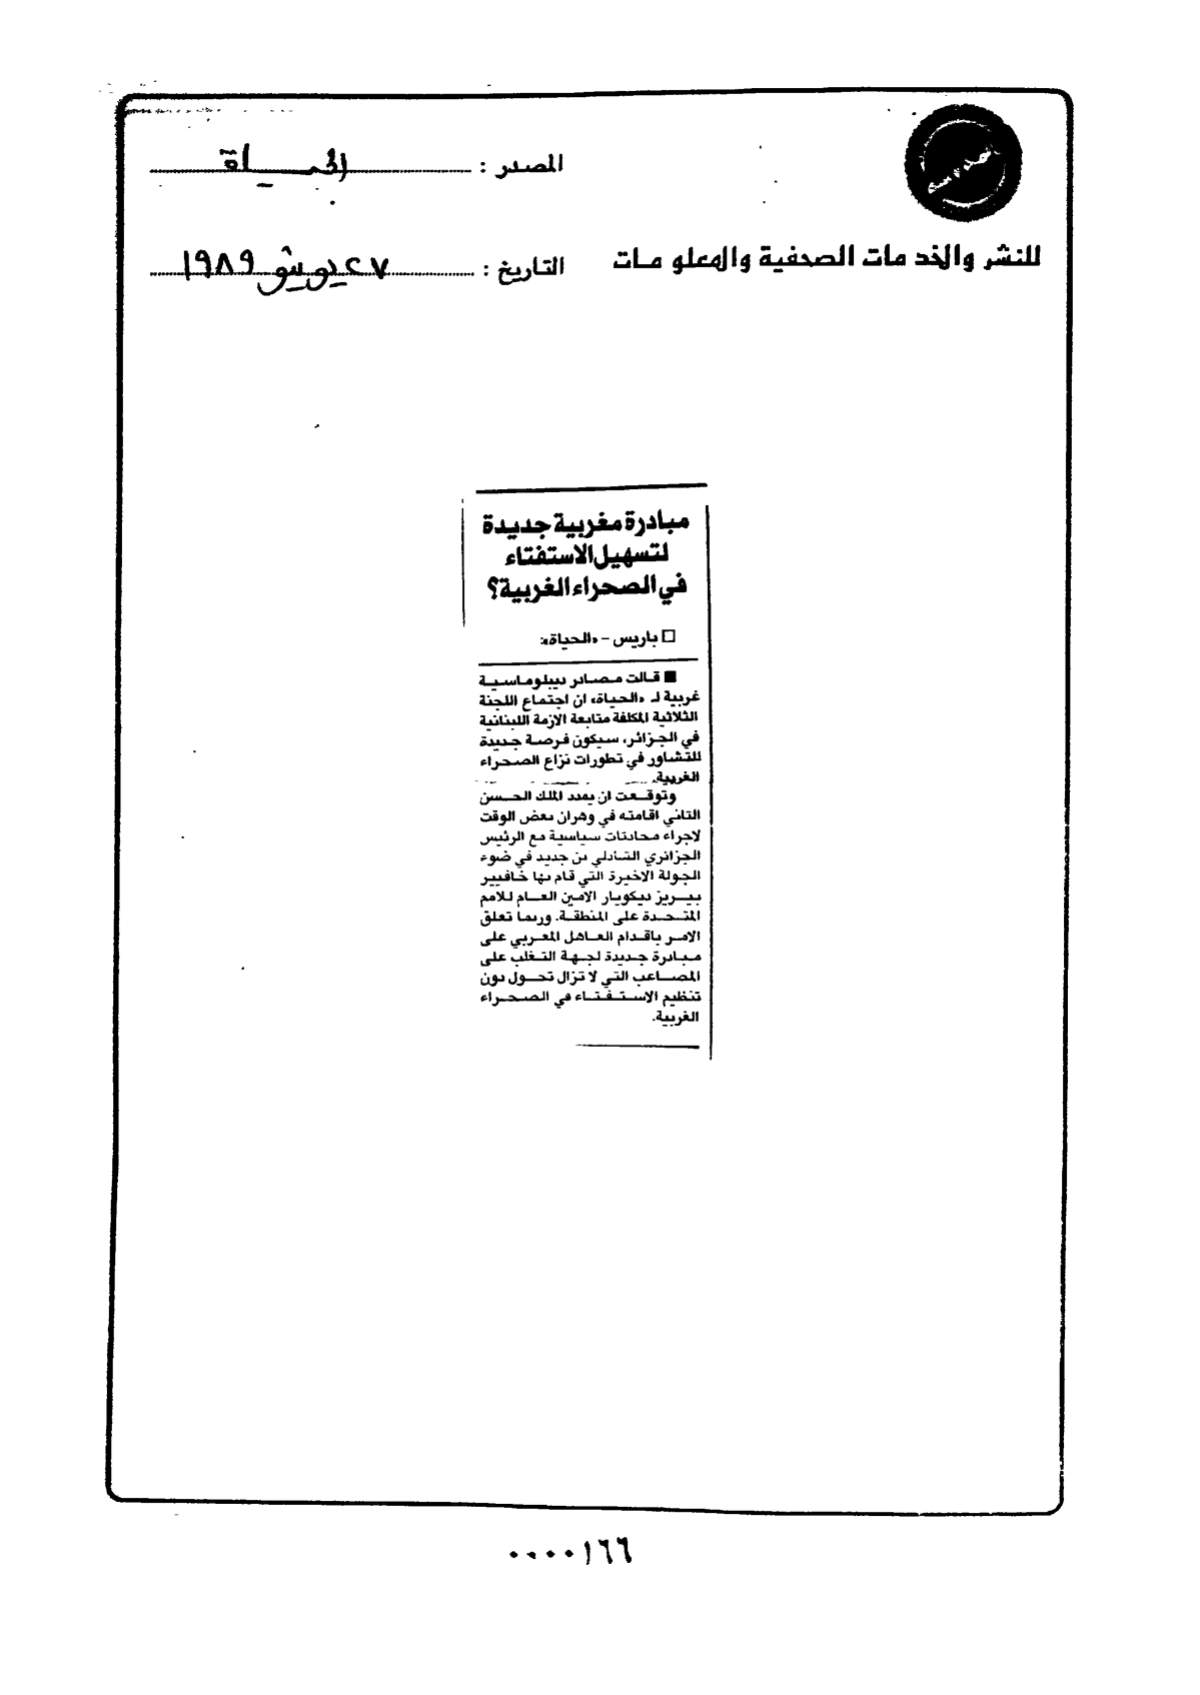 المصدر : الحياة
للنشر والخدمات الصحفية والمعلومات
التاريخ : ٢٧ يونيو ١٩٨٩
مبادرة مغربية جديدة
لتسهيل الاستفتاء
في الصحراء الغربية؟
□ باريس - «الحياة»:
■ قالت مصادر ديبلوماسية
غربية لـ «الحياة» ان اجتماع اللجنة
الثلاثية المكلفة متابعة الازمة اللبنانية
في الجزائر، سيكون فرصة جديدة
للتشاور في تطورات نزاع الصحراء
الغربية.
وتوقعت ان يمدد الملك الحسن
الثاني اقامته في وهران بعض الوقت
لاجراء محادثات سياسية مع الرئيس
الجزائري الشاذلي بن جديد في ضوء
الجولة الاخيرة التي قام بها خافيير
بيريز ديكويار الامين العام للامم
المتحدة على المنطقة. وربما تعلق
الامر باقدام العاهل المغربي على
مبادرة جديدة لجهة التغلب على
المصاعب التي لا تزال تحول دون
تنظيم الاستفتاء في الصحراء
الغربية.
٠٠٠٠١٦٦